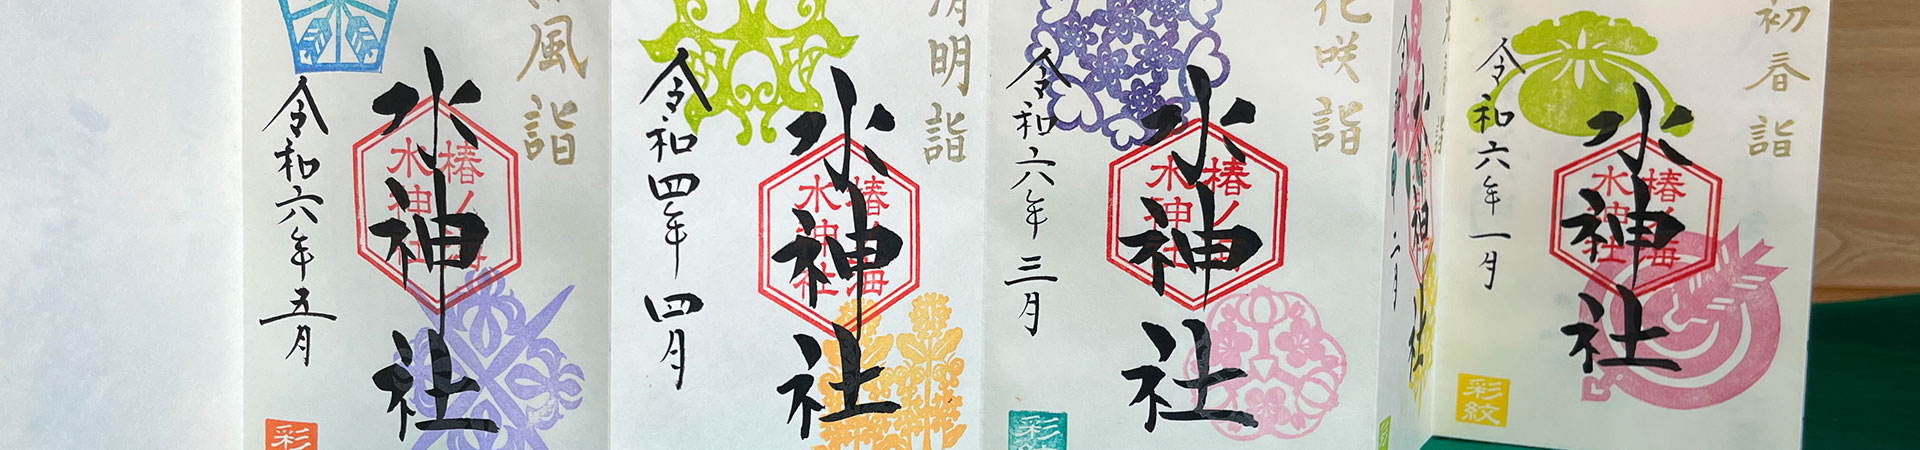 初春詣
水神社
椿ノ海
水神社
令和六年一月
彩紋
詣
水神社
二月
花咲詣
水神社
椿ノ海
水神社
令和六年三月
彩紋
清明詣
水神社
椿ノ海
水神社
令和四年四月
風詣
水神社
椿ノ海
水神社
令和六年五月
彩